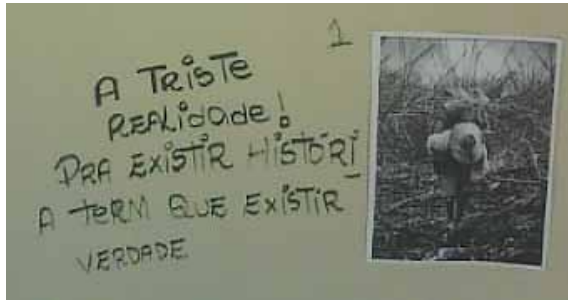 1
A TRISTE
REALidade!
PRA EXiSTiR HiSTÓRi
A teRM QUE EXiSTiR
VERDADE